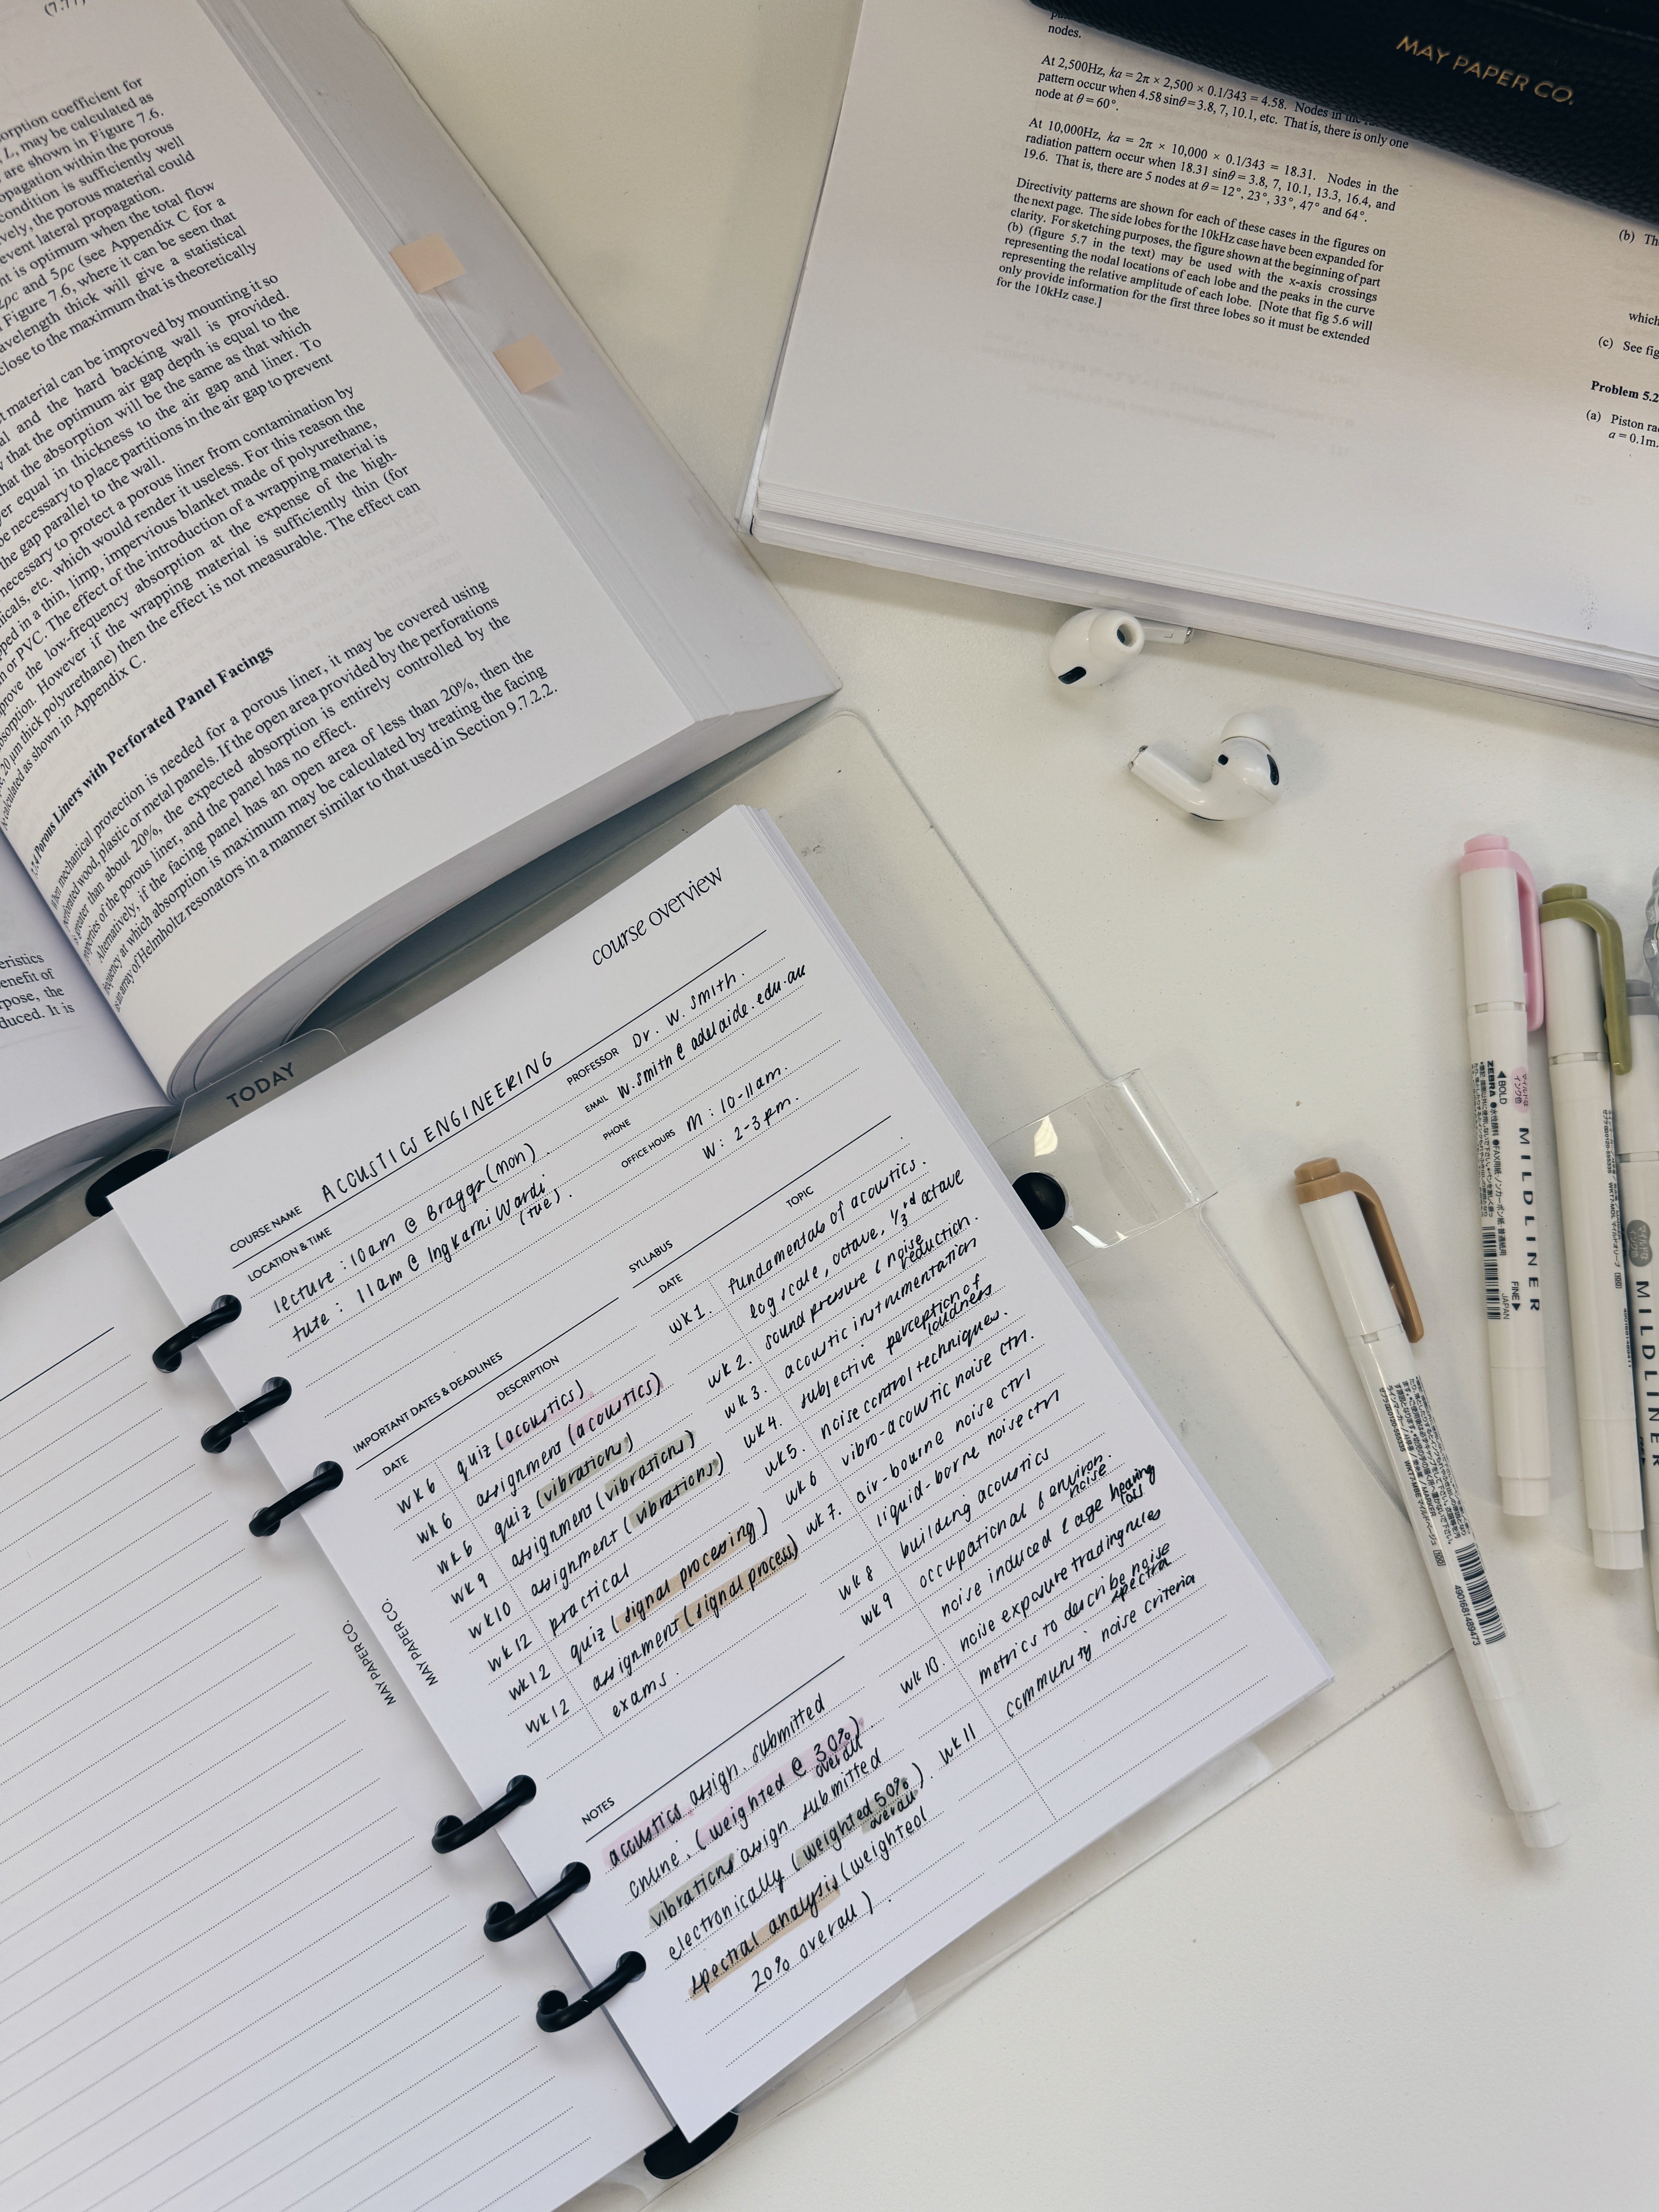 (7.77)
orption coefficient for
, L, may be calculated as
are shown in Figure 7.6.
opagation within the porous
condition is sufficiently well
vely, the porous material could
event lateral propagation.
nt is optimum when the total flow
2ρc and 5ρc (see Appendix C for a
Figure 7.6, where it can be seen that
avelength thick will give a statistical
close to the maximum that is theoretically
t material can be improved by mounting it so
al and the hard backing wall is provided.
w that the optimum air gap depth is equal to the
that the absorption will be the same as that which
yer equal in thickness to the air gap and liner. To
be necessary to place partitions in the air gap to prevent
the gap parallel to the wall.
necessary to protect a porous liner from contamination by
icals, etc. which would render it useless. For this reason the
pped in a thin, limp, impervious blanket made of polyurethane,
n or PVC. The effect of the introduction of a wrapping material is
prove the low-frequency absorption at the expense of the high-
absorption. However if the wrapping material is sufficiently thin (for
20 μm thick polyurethane) then the effect is not measurable. The effect can
calculated as shown in Appendix C.
Porous Liners with Perforated Panel Facings
When mechanical protection is needed for a porous liner, it may be covered using
perforated wood, plastic or metal panels. If the open area provided by the perforations
is greater than about 20%, the expected absorption is entirely controlled by the
properties of the porous liner, and the panel has no effect.
Alternatively, if the facing panel has an open area of less than 20%, then the
frequency at which absorption is maximum may be calculated by treating the facing
as an array of Helmholtz resonators in a manner similar to that used in Section 9.7.2.2.
eristics
enefit of
rpose, the
duced. It is
nodes.
At 2,500Hz, ka = 2π × 2,500 × 0.1/343 = 4.58. Nodes in the
pattern occur when 4.58 sinθ = 3.8, 7, 10.1, etc. That is, there is only one
node at θ = 60°.
At 10,000Hz, ka = 2π × 10,000 × 0.1/343 = 18.31. Nodes in the
radiation pattern occur when 18.31 sinθ = 3.8, 7, 10.1, 13.3, 16.4, and
19.6. That is, there are 5 nodes at θ = 12°, 23°, 33°, 47° and 64°.
Directivity patterns are shown for each of these cases in the figures on
the next page. The side lobes for the 10kHz case have been expanded for
clarity. For sketching purposes, the figure shown at the beginning of part
(b) (figure 5.7 in the text) may be used with the x-axis crossings
representing the nodal locations of each lobe and the peaks in the curve
representing the relative amplitude of each lobe. [Note that fig 5.6 will
only provide information for the first three lobes so it must be extended
for the 10kHz case.]
MAY PAPER CO.
(b) Th
which
(c) See fig
Problem 5.2
(a) Piston ra
a = 0.1m.
TODAY
course overview
COURSE NAME ACOUSTICS ENGINEERING
LOCATION & TIME
lecture : 10am @ Braggs (mon)
tute : 11am @ Ingkarni Wardi
(tue).
PROFESSOR Dr. W. Smith.
EMAIL w.smith@adelaide.edu.au
PHONE
OFFICE HOURS M : 10-11am.
W : 2-3pm.
IMPORTANT DATES & DEADLINES
DATE DESCRIPTION
wk 6 quiz (acoustics)
wk 6 assignment (acoustics)
wk 6 quiz (vibrations)
wk 9 assignment (vibrations)
wk10 assignment (vibrations)
wk 12 practical
wk12 quiz (signal processing)
wk 12 assignment (signal process)
exams.
SYLLABUS
DATE TOPIC
wk 1. fundamentals of acoustics.
log scale, octave, 1/3rd octave
sound pressure & noise reduction.
wk 2. acoustic instrumentation
wk 3. subjective perception of loudness
wk 4. noise control techniques.
wk 5. vibro-acoustic noise ctrl.
wk 6 air-bourne noise ctrl
wk 7. liquid-borne noise ctrl
building acoustics
wk 8 occupational & environ. noise.
wk 9 noise induced & age hearing loss
noise exposure trading rules
wk 10. metrics to describe noise spectra
community noise criteria
wk 11
NOTES
acoustics assign. submitted
online. (weighted @ 30%)
overall
vibrations assign. submitted
electronically (weighted 50%
overall).
spectral analysis (weighted
20% overall).
MAY PAPER CO.
MAY PAPER CO.
ZEBRA
◀BOLD
MILDLINER
FINE▶
JAPAN
MILDLINER
MILDLINER
4901681489473